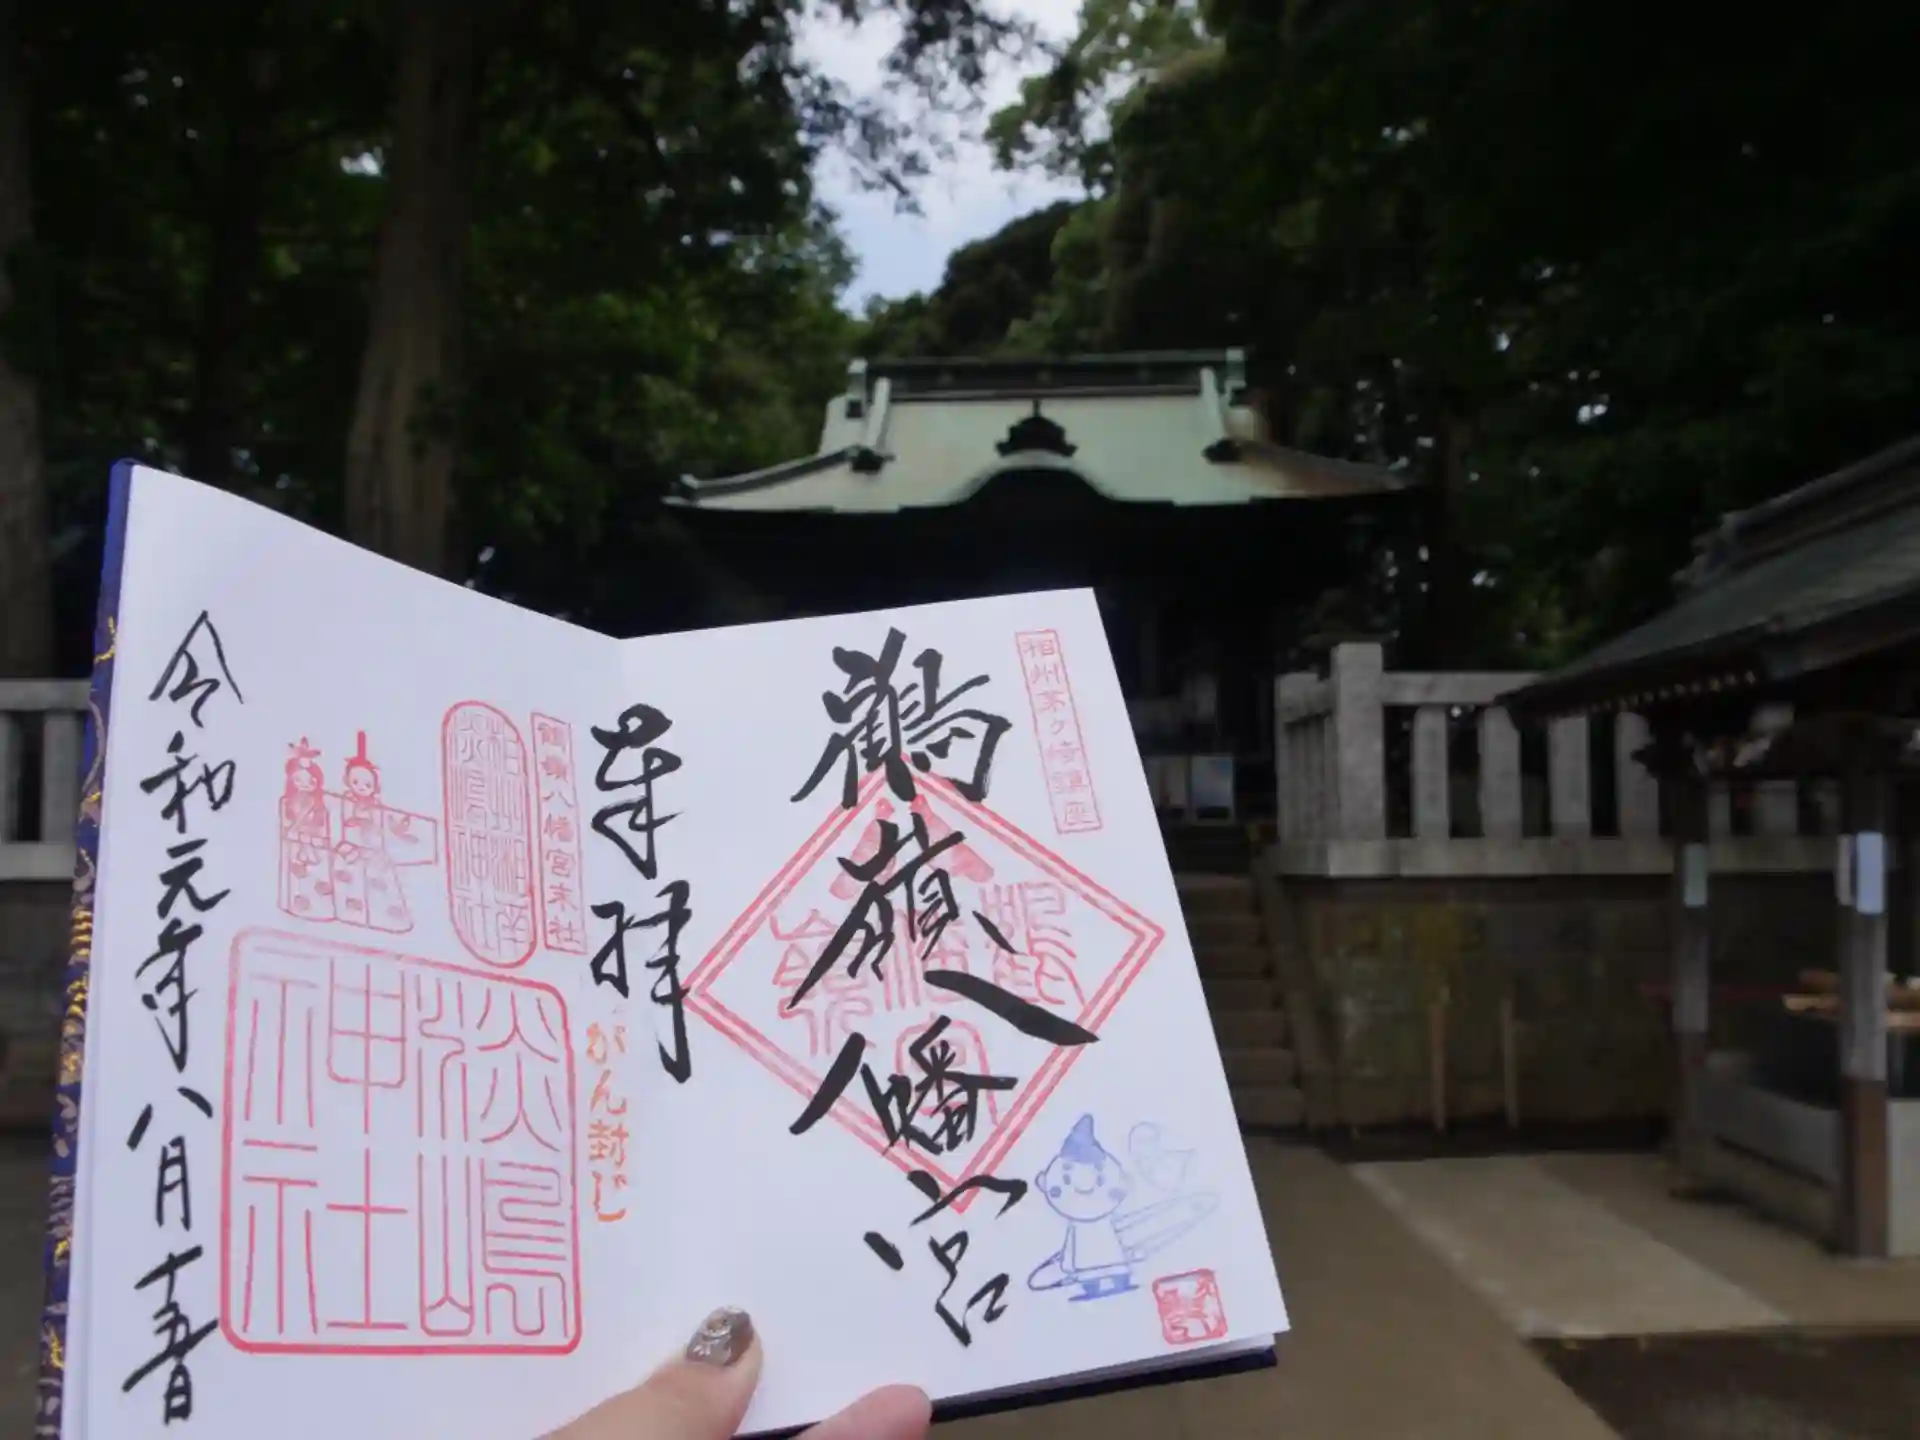 相州茅ヶ崎鎮座
鶴嶺八幡宮
奉拝
がん封じ
鶴嶺八幡宮末社
相州湘南
淡嶋神社
淡嶋
神社
令和元年八月十五日